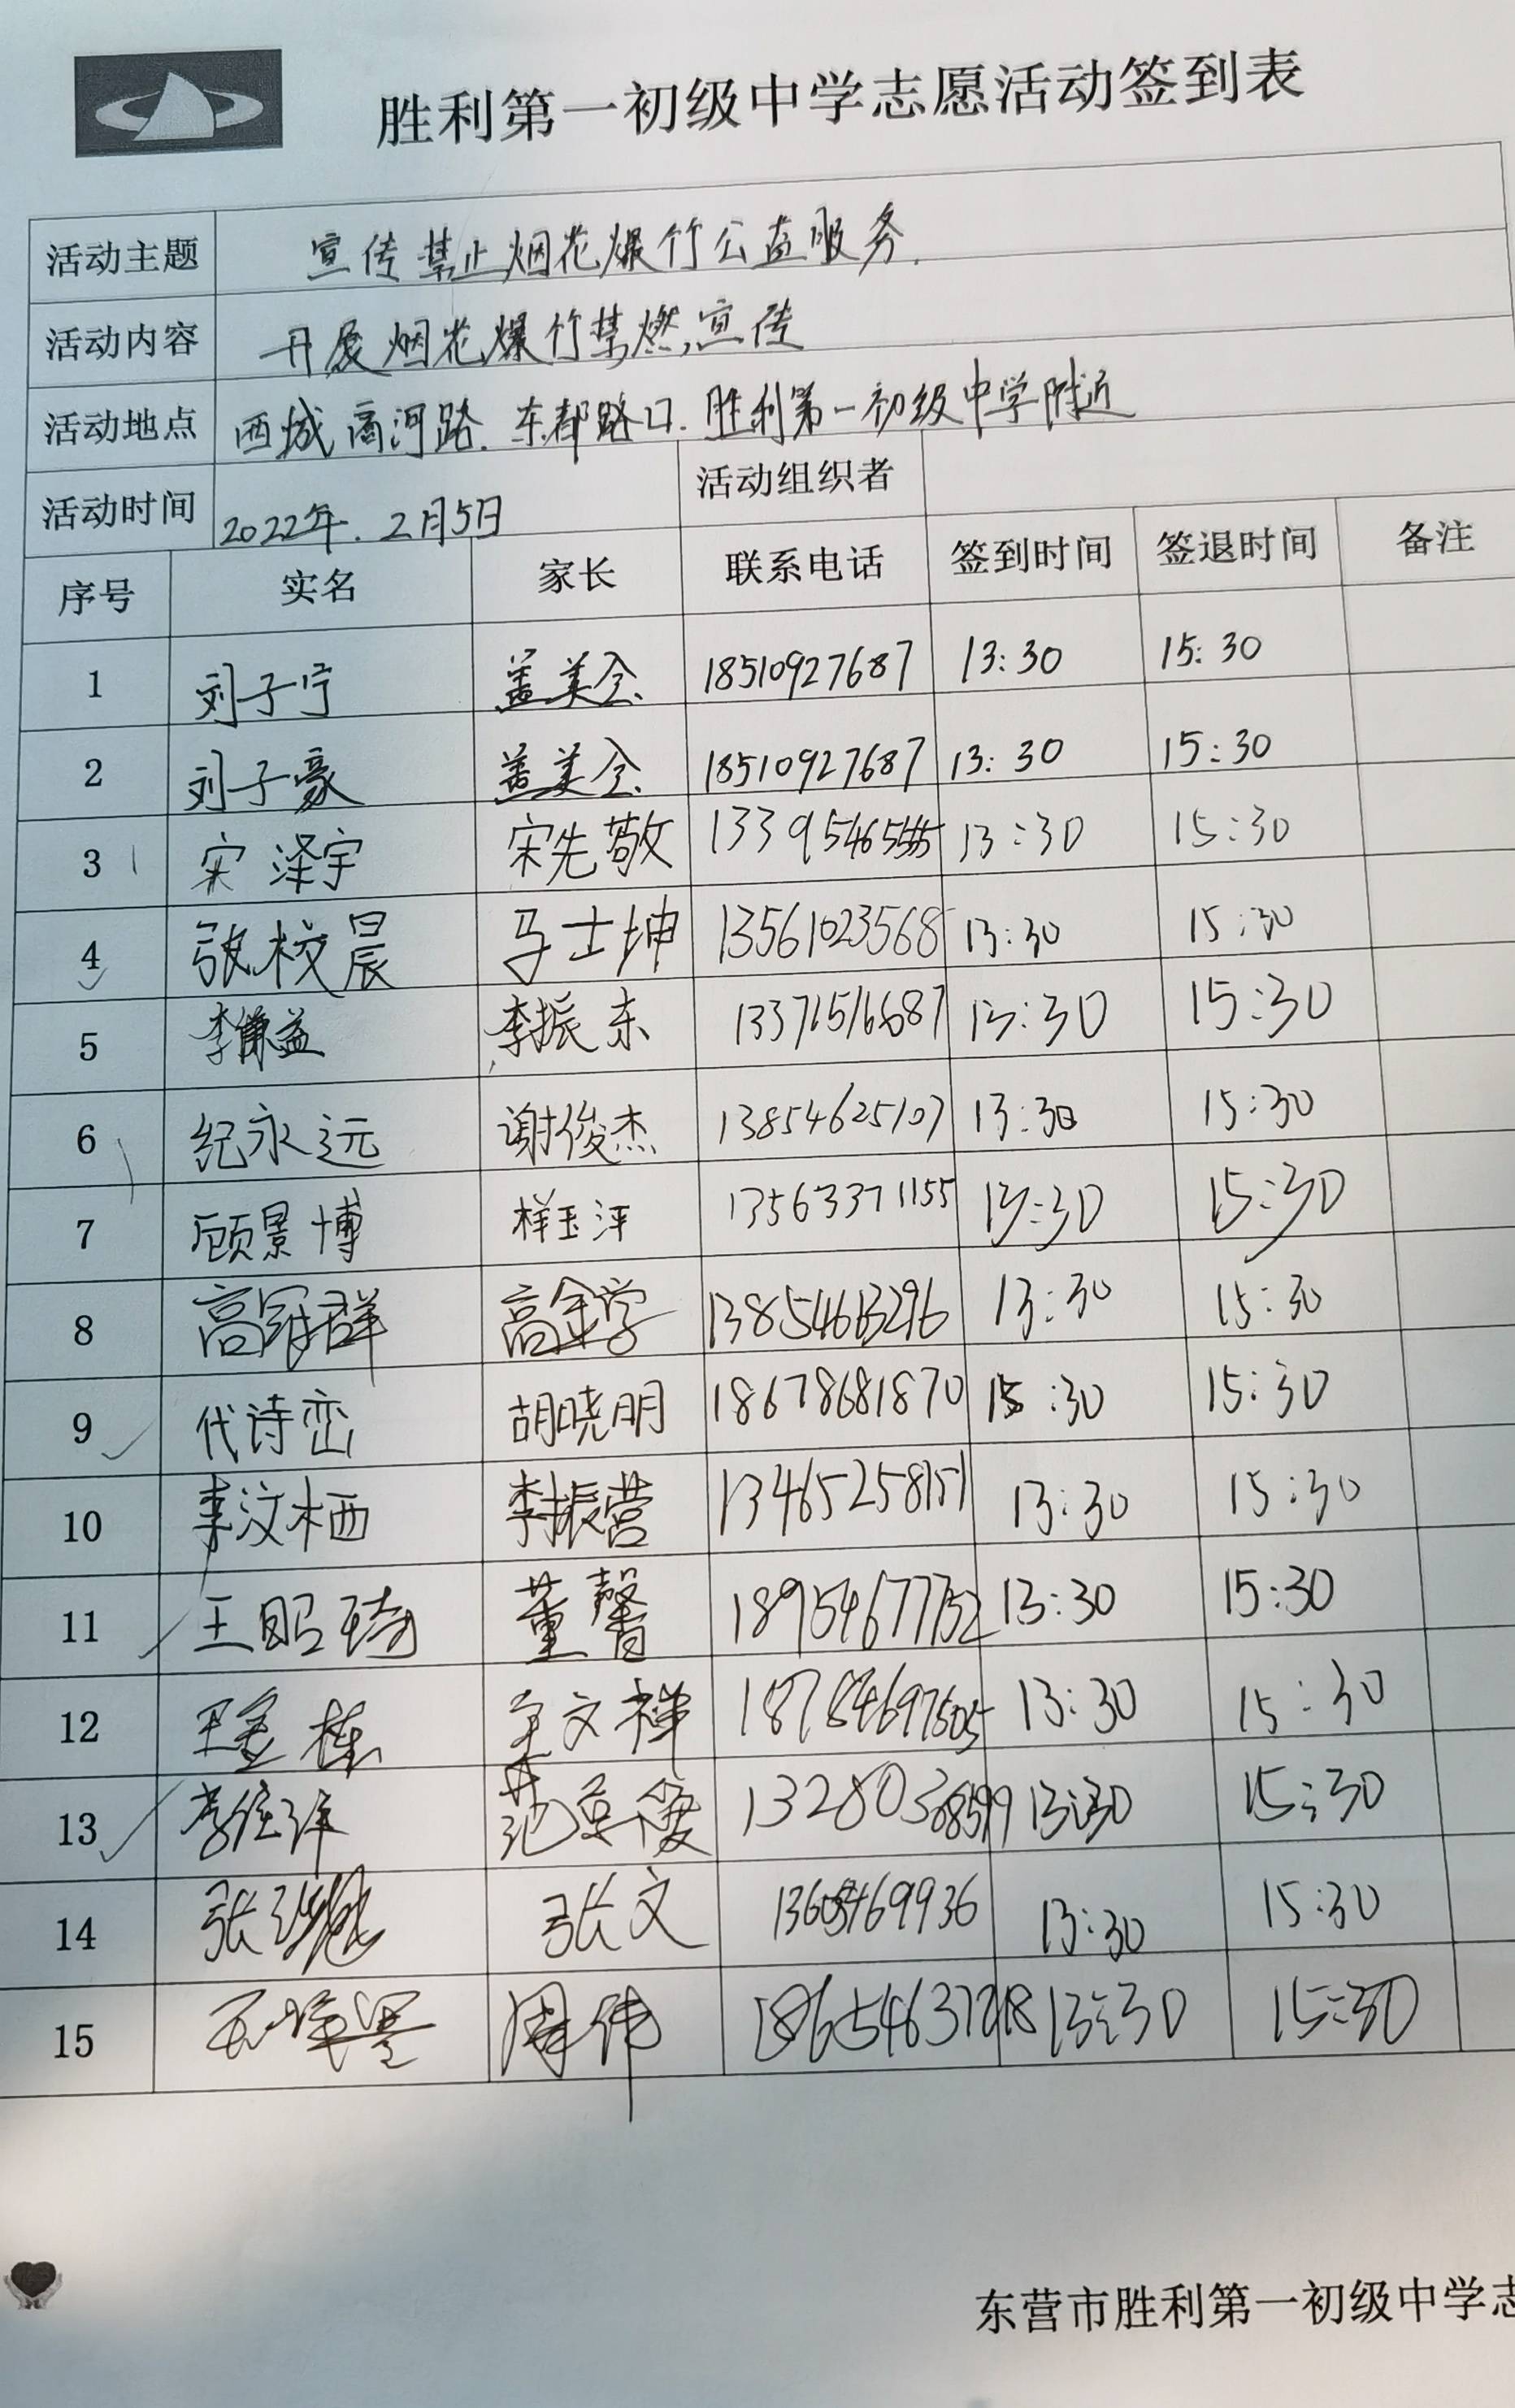 胜利第一初级中学志愿活动签到表
活动主题 宣传禁止烟花爆竹公益服务.
活动内容 开展烟花爆竹禁燃宣传
活动地点 西城商河路.东都路口.胜利第一初级中学附近
活动时间 2022年.2月5日 活动组织者
序号 实名 家长 联系电话 签到时间 签退时间 备注
1 刘子宁 盖美全 18510927687 13:30 15:30
2 刘子豪 盖美全 18510927687 13:30 15:30
3 宋泽宇 宋先敬 13:30 15:30
4 张校晨 马士坤 13561023568 13:30 15:30
5 李谦益 李振东 13371516687 13:30 15:30
6 纪永远 谢俊杰 13854625107 13:30 15:30
7 顾景博 13563371155 13:30 15:30
8 高冠群 高金学 13854613296 13:30 15:30
9 代诗峦 胡晓明 18678681870 :30 15:30
10 李汶栖 李振营 13465258151 13:30 15:30
11 王昭琦 董馨 18954677752 13:30 15:30
12 文祥 13:30 15:30
13 13:30 15:30
14 张 张文 13:30 15:30
15 周伟 13:30 15:30
东营市胜利第一初级中学志